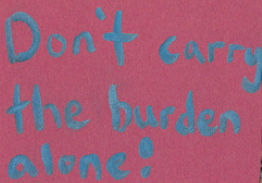 Don't carry
the burden
alone!